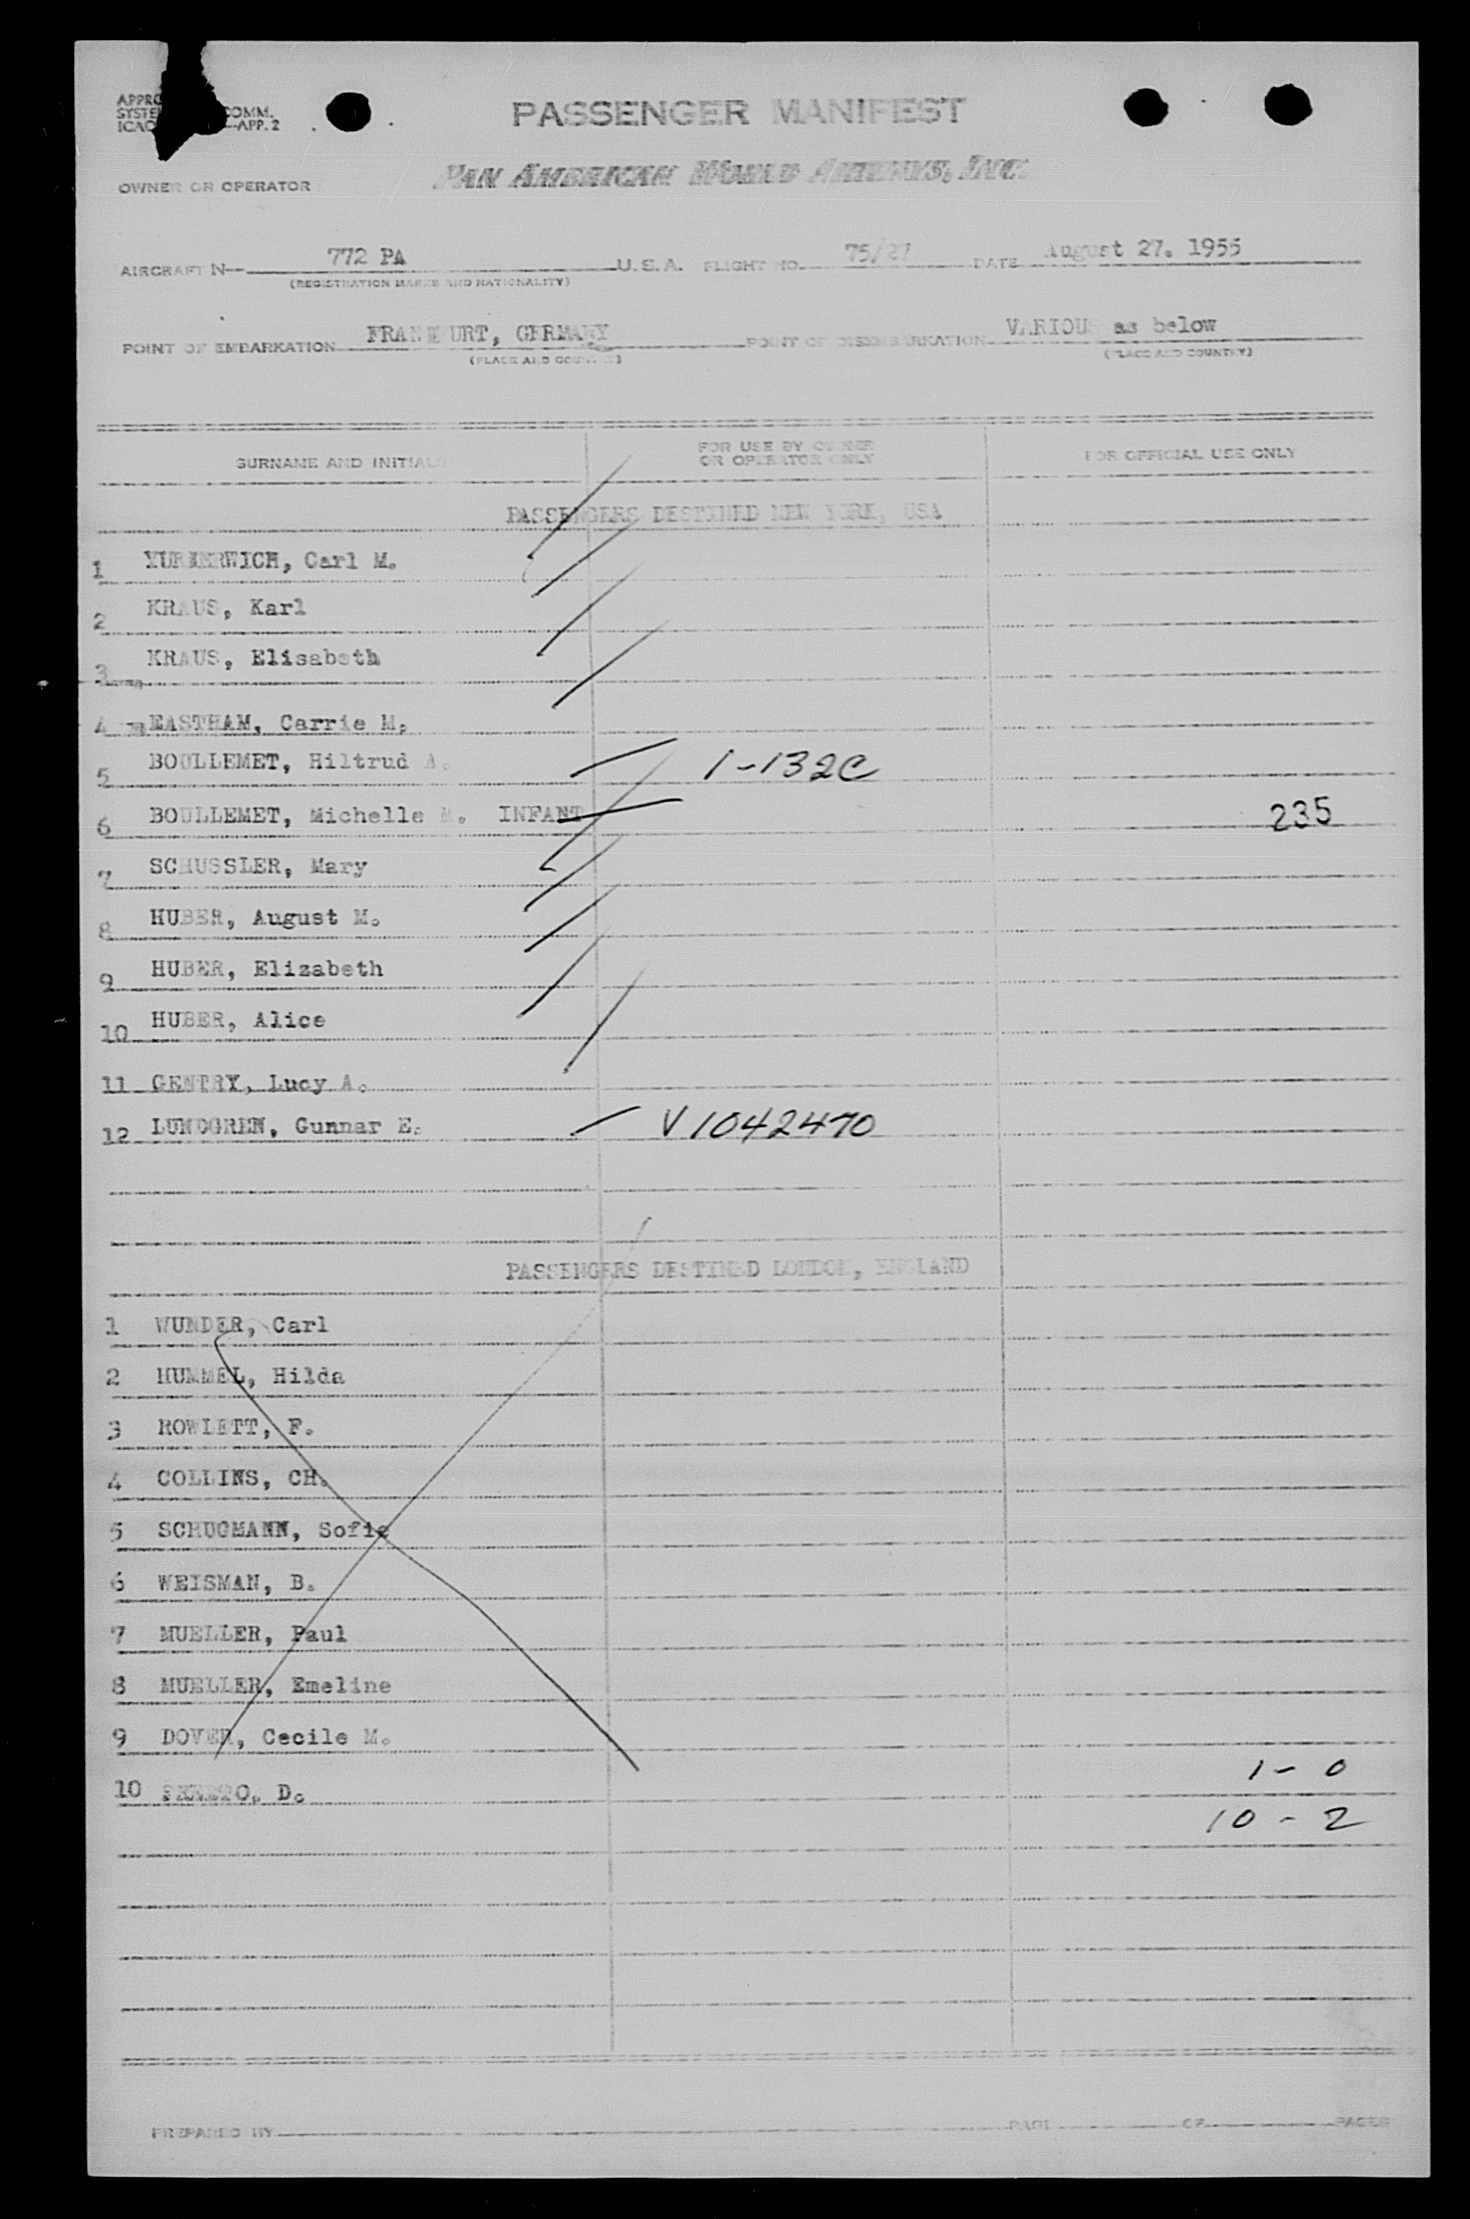 PASSENGER MANIFEST
COMM.
APP. 2
OWNER OR OPERATOR
PAN AMERICAN WORLD AIRWAYS, INC.
AIRCRAFT N 772 PA U. S. A. FLIGHT NO. 75/27 DATE August 27. 1955
(REGISTRATION MARKS AND NATIONALITY)
POINT OF EMBARKATION FRANKFURT, GERMANY POINT OF DISEMBARKATION VARIOUS as below
(PLACE AND COUNTRY) (PLACE AND COUNTRY)
SURNAME AND INITIALS FOR USE BY OWNER OR OPERATOR ONLY FOR OFFICIAL USE ONLY
PASSENGERS DESTINED NEW YORK, USA
1 Carl M.
2 KRAUS, Karl
3 KRAUS, Elisabeth
4 EASTHAM, Carrie M.
5 BOULLEMET, Hiltrud A. 1-132C
6 BOULLEMET, Michelle M. INFANT 235
7 SCHUSSLER, Mary
8 HUBER, August M.
9 HUBER, Elizabeth
10 HUBER, Alice
11 GENTRY, Lucy A.
12 LUNDGREN, Gunnar E. V1042470
PASSENGERS DESTINED LONDON, ENGLAND
1 WUNDER, Carl
2 HUMMEL, Hilda
3 ROWLETT, F.
4 COLLINS, CH.
5 SCHUGMANN, Sofie
6 WEISMAN, B.
7 MUELLER, Paul
8 MUELLER, Emeline
9 DOVER, Cecile M.
1 - 0
10 D.
10 - 2
PREPARED BY PAGE OF PAGES